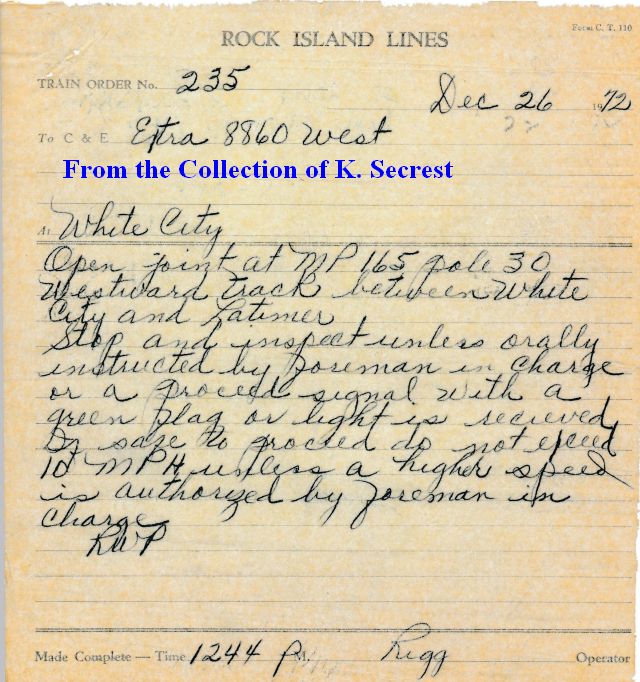 Form C. T. 110
ROCK ISLAND LINES
TRAIN ORDER No. 235
Dec 26 1972
To C & E Extra 8860 West
From the Collection of K. Secrest
At White City
Open joint at MP 165 pole 30
Westward track between White
City and Latimer
Stop and inspect unless orally
instructed by foreman in charge
or a proceed signal with a
green flag or light is recieved
If safe to proceed do not exceed
10 MPH unless a higher speed
is authorized by foreman in
charge
RWP
Made Complete — Time 1244 P M. Rigg Operator